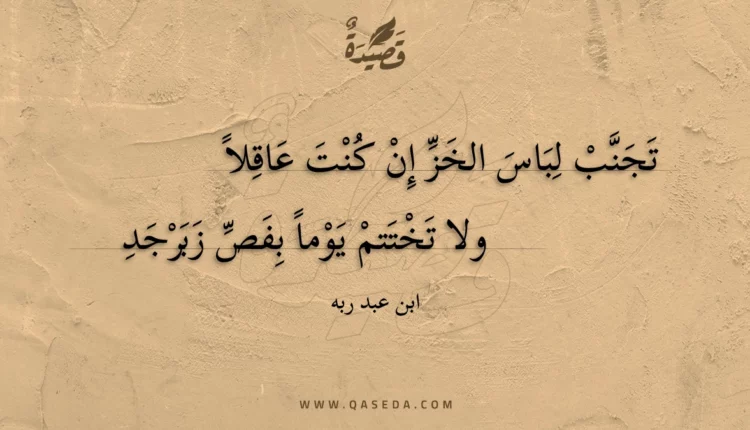 قَصِيْدَةٌ
تَجَنَّبْ لِبَاسَ الخَزِّ إِنْ كُنْتَ عَاقِلاً
ولا تَخْتَتمْ يَوْماً بِفَصِّ زَبَرْجَدِ
ابن عبد ربه
WWW.QASEDA.COM